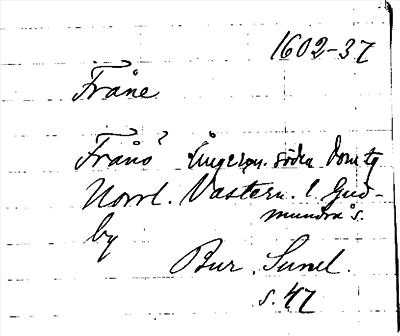 1602-37
Fråne
Frånö? Ångerm. södra domsg
Norrl. Västern. l Gud-
mundrå s.
by
Bur. Sunel.
s. 47